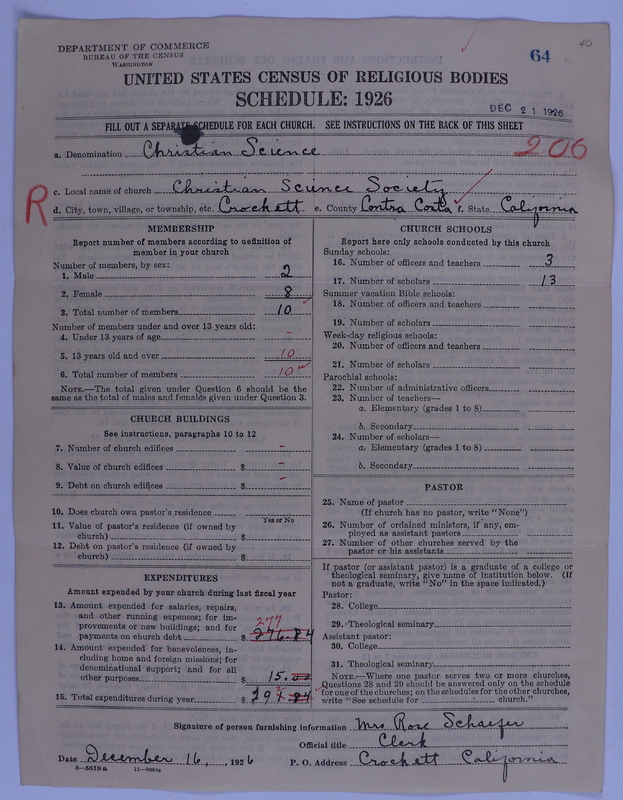 DEPARTMENT OF COMMERCE
BUREAU OF THE CENSUS
WASHINGTON
64
40
UNITED STATES CENSUS OF RELIGIOUS BODIES
SCHEDULE: 1926
DEC 21 1926
FILL OUT A SEPARATE SCHEDULE FOR EACH CHURCH. SEE INSTRUCTIONS ON THE BACK OF THIS SHEET
a. Denomination Christian Science
206
c. Local name of church Christian Science Society
R
d. City, town, village, or township, etc. Crockett e. County Contra Costa f. State California
MEMBERSHIP
Report number of members according to definition of
member in your church
Number of members, by sex:
1. Male 2
2. Female 8
3. Total number of members 10
Number of members under and over 13 years old:
4. Under 13 years of age -
5. 13 years old and over 10
6. Total number of members 10
NOTE.—The total given under Question 6 should be the
same as the total of males and females given under Question 3.
CHURCH BUILDINGS
See instructions, paragraphs 10 to 12
7. Number of church edifices -
8. Value of church edifices $ -
9. Debt on church edifices $ -
10. Does church own pastor's residence
Yes or No
11. Value of pastor's residence (if owned by
church) $
12. Debt on pastor's residence (if owned by
church) $
EXPENDITURES
Amount expended by your church during last fiscal year
13. Amount expended for salaries, repairs,
and other running expenses; for im-
provements or new buildings; and for
277
payments on church debt $ 276.84
14. Amount expended for benevolences, in-
cluding home and foreign missions; for
denominational support; and for all
other purposes $ 15.00
15. Total expenditures during year $ 291.84
CHURCH SCHOOLS
Report here only schools conducted by this church
Sunday schools:
16. Number of officers and teachers 3
17. Number of scholars 13
Summer vacation Bible schools:
18. Number of officers and teachers
19. Number of scholars
Week-day religious schools:
20. Number of officers and teachers
21. Number of scholars
Parochial schools:
22. Number of administrative officers
23. Number of teachers—
a. Elementary (grades 1 to 8)
b. Secondary
24. Number of scholars—
a. Elementary (grades 1 to 8)
b. Secondary
PASTOR
25. Name of pastor
(If church has no pastor, write "None")
26. Number of ordained ministers, if any, em-
ployed as assistant pastors
27. Number of other churches served by the
pastor or his assistants
If pastor (or assistant pastor) is a graduate of a college or
theological seminary, give name of institution below. (If
not a graduate, write "No" in the space indicated.)
Pastor:
28. College
29. Theological seminary
Assistant pastor:
30. College
31. Theological seminary
NOTE.—Where one pastor serves two or more churches,
Questions 28 and 29 should be answered only on the schedule
for one of the churches; on the schedules for the other churches,
write "See schedule for church."
Signature of person furnishing information Mrs Rose Schaefer
Official title Clerk
Date December 16, 1926 P. O. Address Crockett California
8-5518a